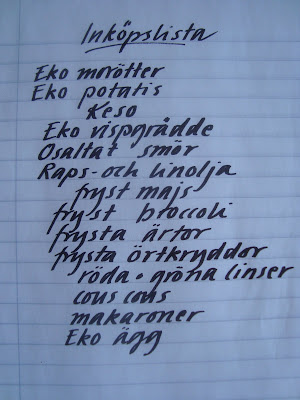 Inköpslista
Eko morötter
Eko potatis
Keso
Eko vispgrädde
Osaltat smör
Raps- och linolja
fryst majs
fryst broccoli
frysta ärtor
frysta örtkryddor
röda • gröna linser
cous cous
makaroner
Eko ägg